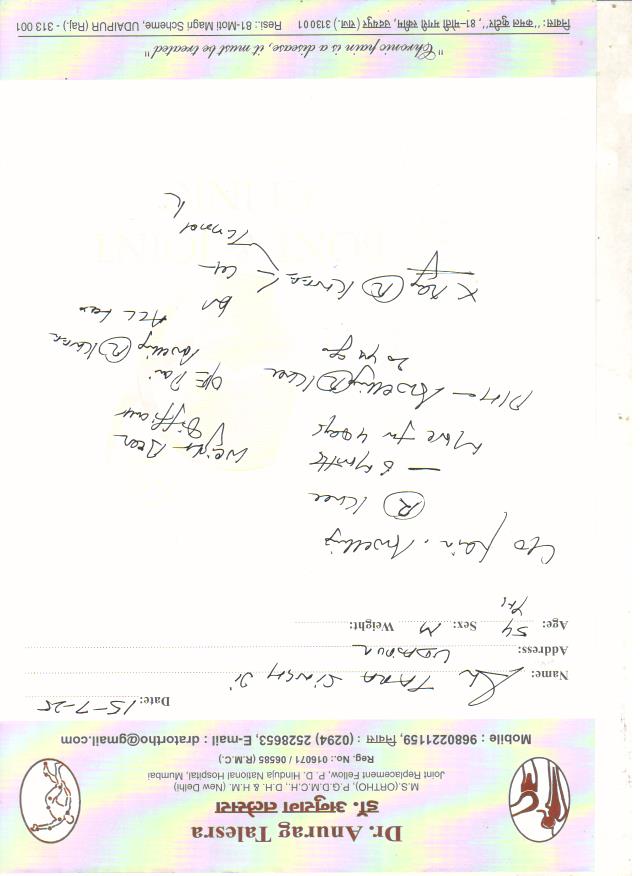 Dr. Anurag Talesra
डॉ. अनुराग तलेसरा
M.S.(ORTHO), P.G.D.M.C.H., D.H. & H.M. (New Delhi)
Joint Replacement Fellow, P. D. Hinduja National Hospital, Mumbai
Reg. No.: 016071 / 06985 (R.M.C.)
Mobile : 9680221159, निवास : (0294) 2528653, E-mail : dratortho@gmail.com
Date: 15-7-25
Name: Sh TARA SINGH Ji
Address: UDAIPUR
Age: 54 Yrs Sex: M Weight:
C/o pain, Swelling
(R) Knee
- 6 months
More for 4 days
Weight Bear
Difficult
P/H - Swelling (R) Knee
20 yrs ago
O/E Pain
Swelling (R) Knee
X Ray (R) Knee
BONE JOINT
CLINIC
"Chronic pain is a disease, it must be treated"
निवास: "कमल कुटीर", 81-मोती मगरी स्कीम, उदयपुर (राज.) 313001 Resi.: 81-Moti Magri Scheme, UDAIPUR (Raj.) - 313 001